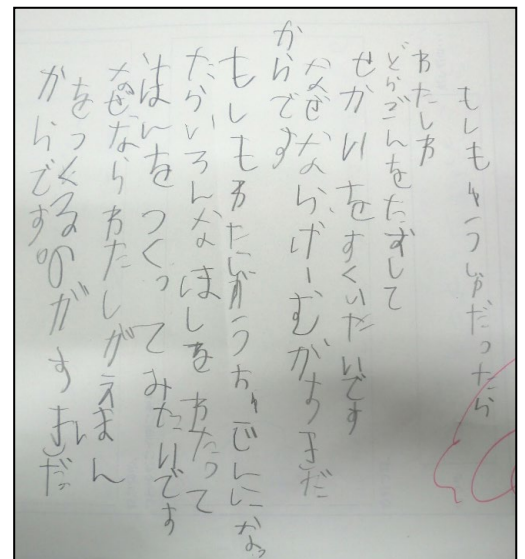 もしもゆうしゃだったら
わたしわ
どらごんをたおして
せかいをすくいたいです
なぜなら、げーむがすきだ
からです
もしもわたしがうちゅじんになっ
たらいろんなほしをわたって
ほんをつくってみたいです
なぜならわたしがえほん
をつくるのがすきだ
からです。